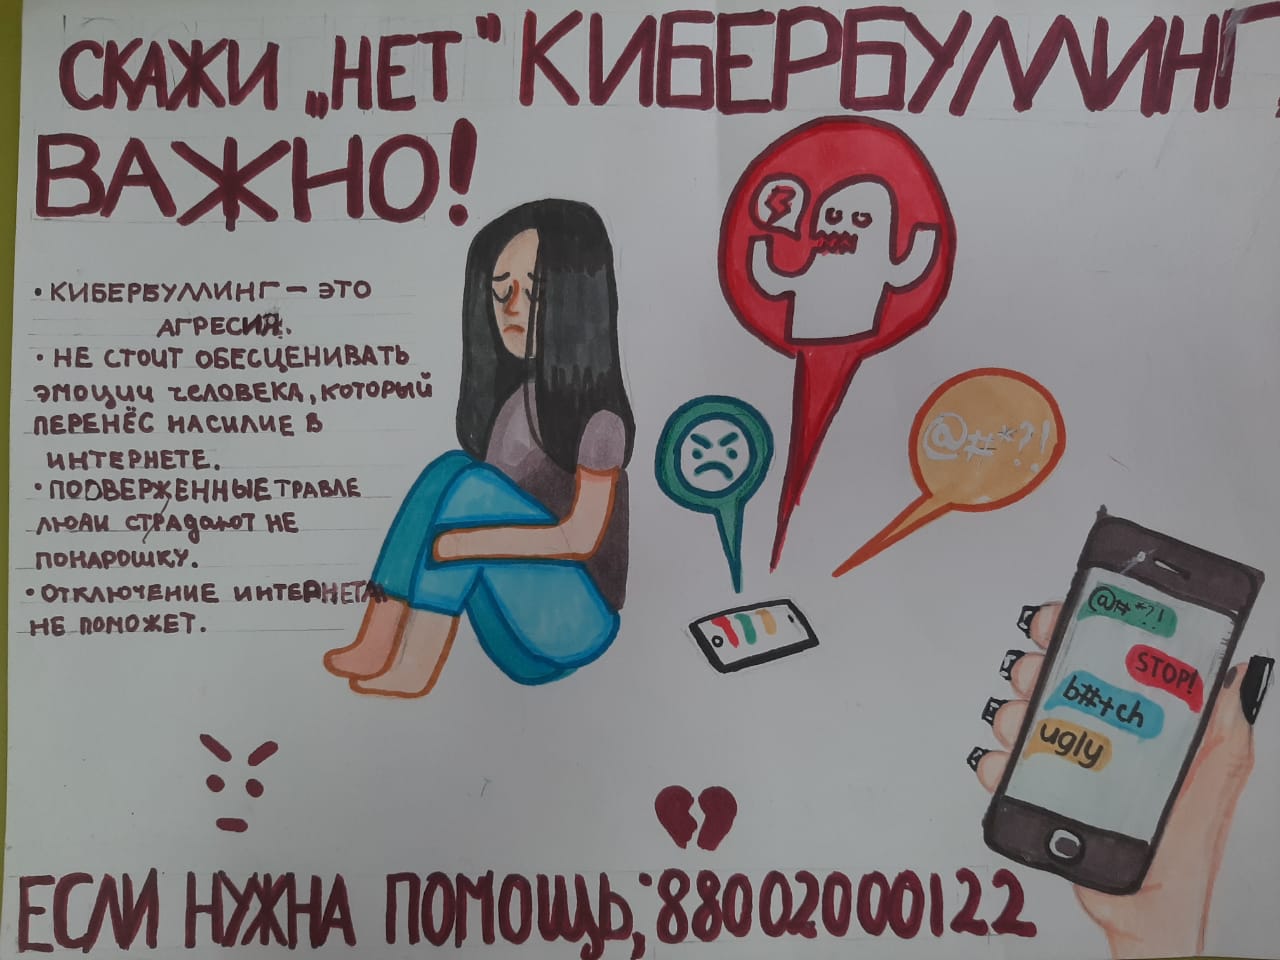 СКАЖИ „НЕТ" КИБЕРБУЛЛИНГ,
ВАЖНО!
• КИБЕРБУЛЛИНГ – ЭТО
АГРЕСИЯ.
• НЕ СТОИТ ОБЕСЦЕНИВАТЬ
ЭМОЦИИ ЧЕЛОВЕКА, КОТОРЫЙ
ПЕРЕНЁС НАСИЛИЕ В
ИНТЕРНЕТЕ.
• ПОДВЕРЖЕННЫЕ ТРАВЛЕ
ЛЮДИ СТРАДАЮТ НЕ
ПОНАРОШКУ.
• ОТКЛЮЧЕНИЕ ИНТЕРНЕТА
НЕ ПОМОЖЕТ.
@#*?!
@#*?!
STOP!
b#+ch
ugly
ЕСЛИ НУЖНА ПОМОЩЬ; 88002000122